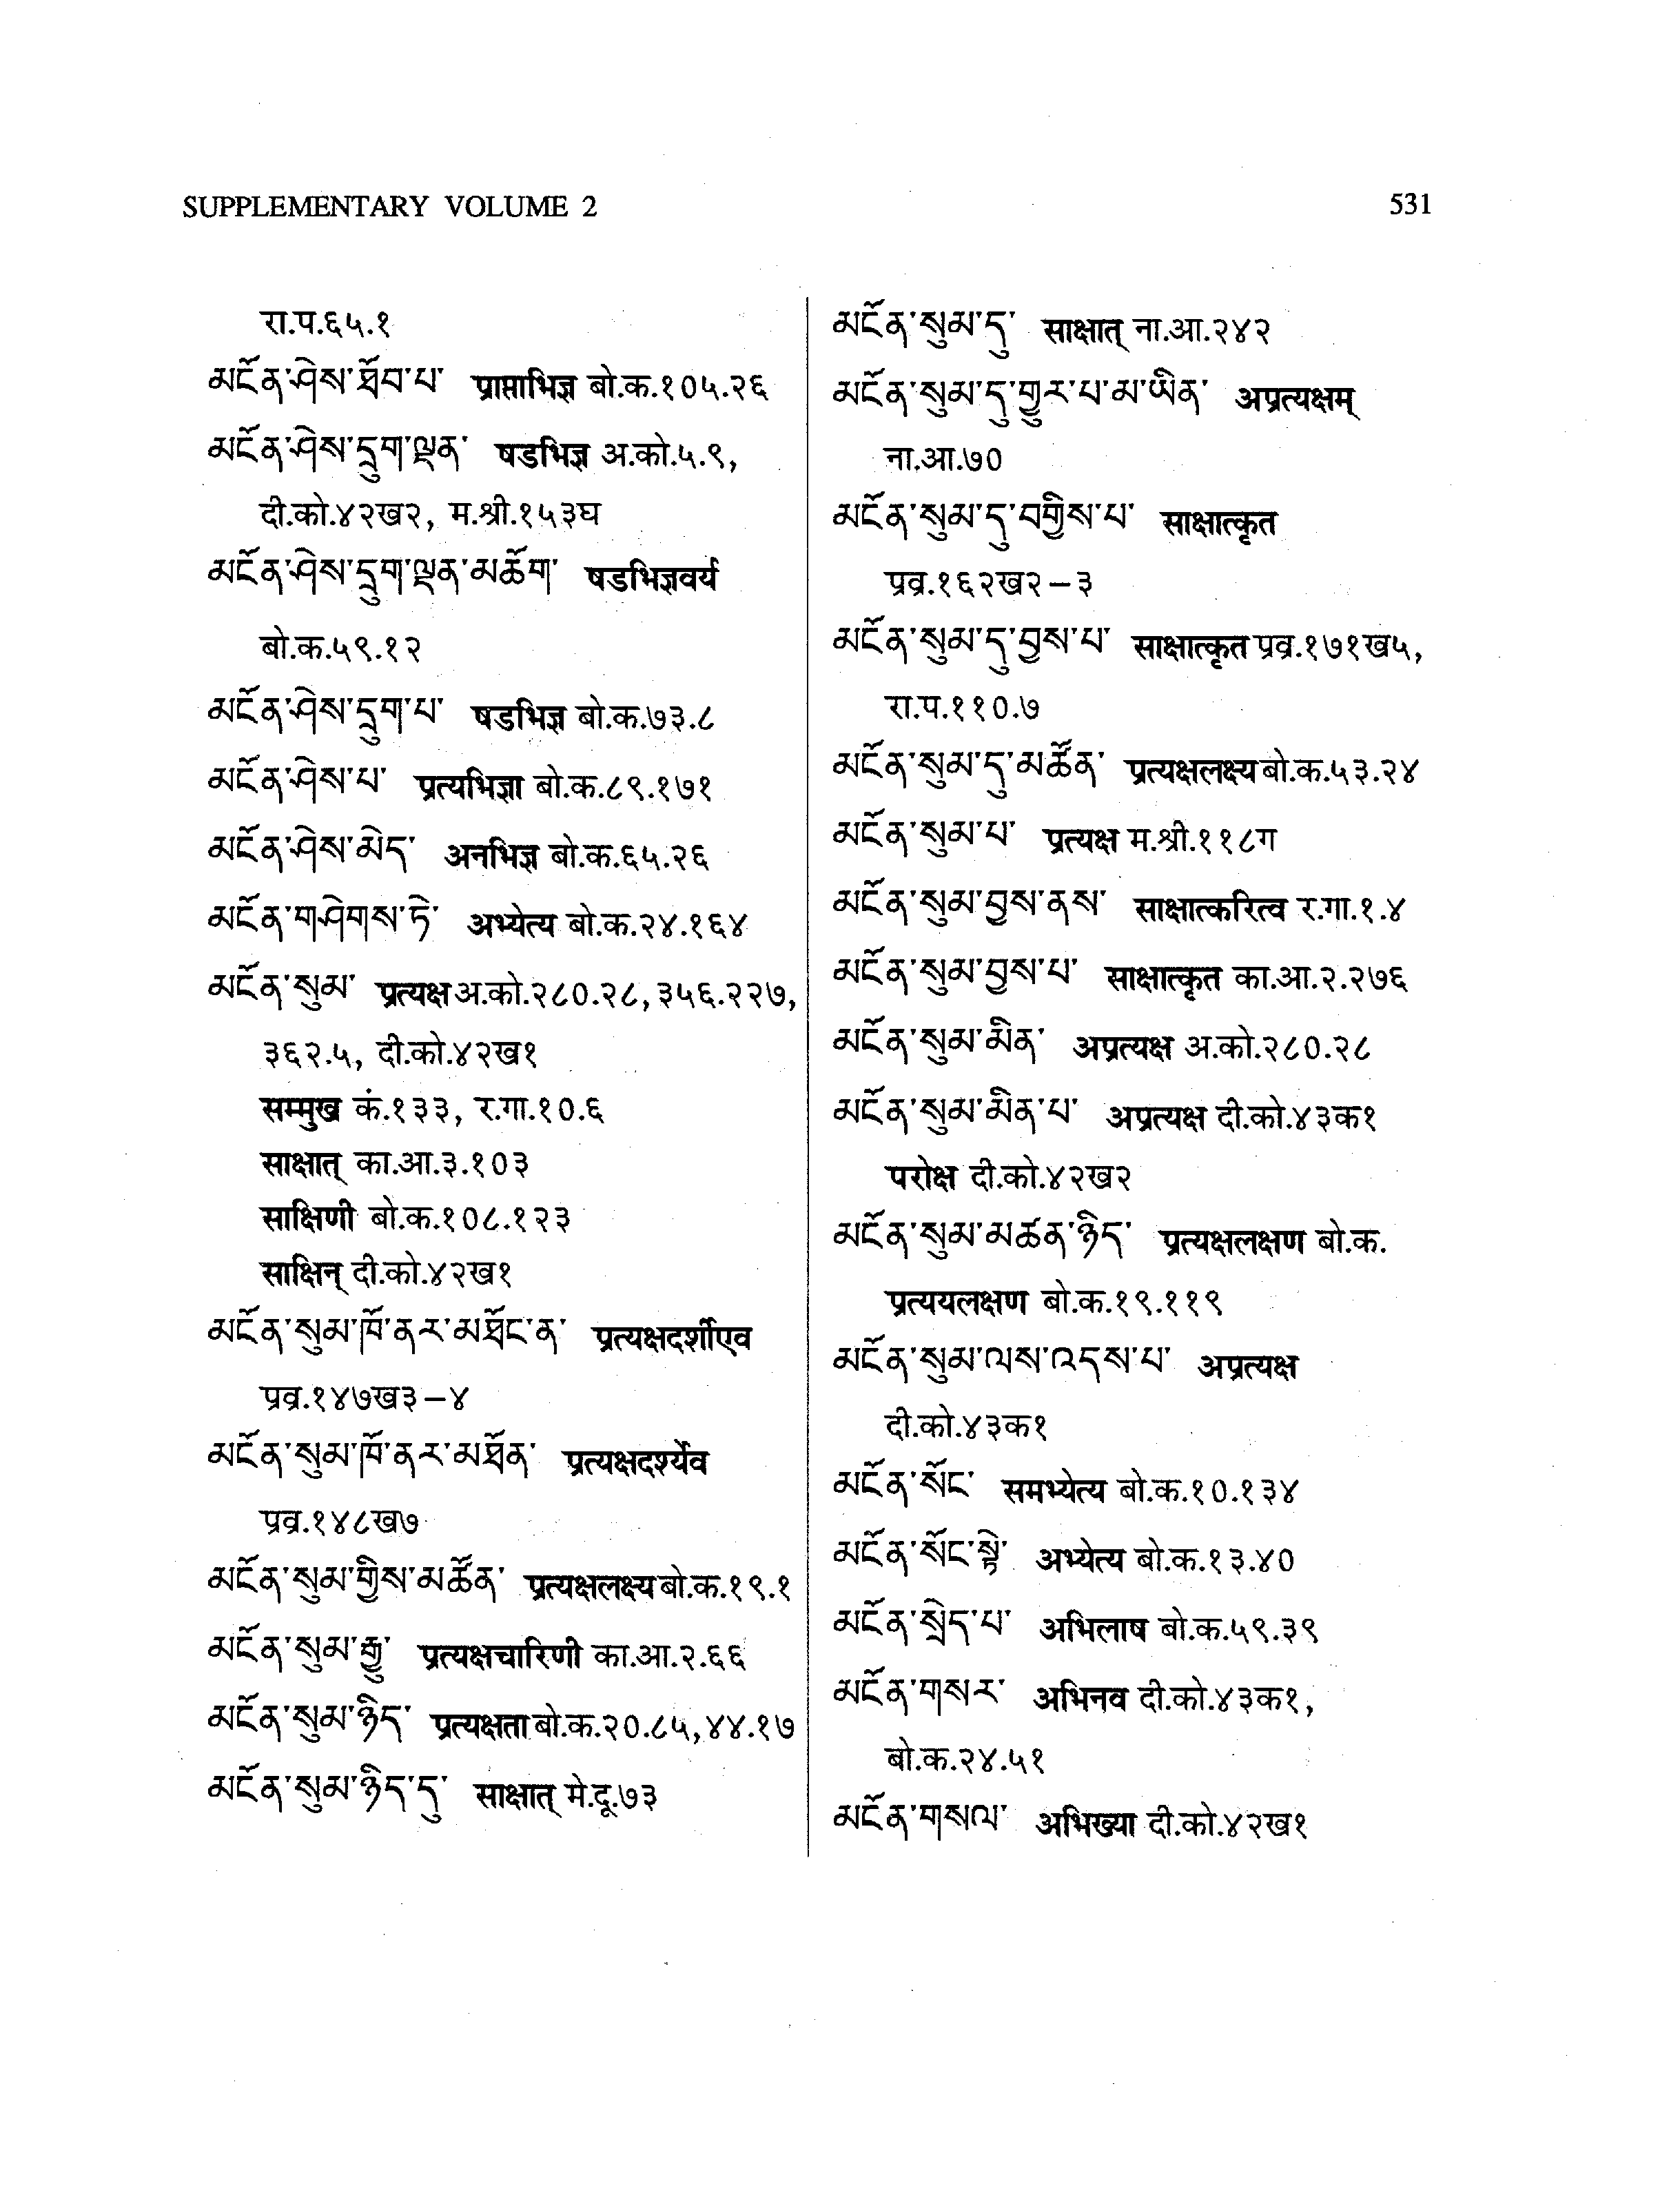 SUPPLEMENTARY VOLUME 2 531
रा.प.६५.१
མངོན་ཤེས་ཐོབ་པ་ प्राप्ताभिज्ञ बो.क.१०५.२६
མངོན་ཤེས་དྲུག་ལྡན་ षडभिज्ञ अ.को.५.९,
दी.को.४२ख२, म.श्री.१५३घ
མངོན་ཤེས་དྲུག་ལྡན་མཆོག་ षडभिज्ञवर्य
बो.क.५९.१२
མངོན་ཤེས་དྲུག་པ་ षडभिज्ञ बो.क.७३.८
མངོན་ཤེས་པ་ प्रत्यभिज्ञा बो.क.८९.१७१
མངོན་ཤེས་མེད་ अनभिज्ञ बो.क.६५.२६
མངོན་གཤེགས་ཏེ་ अभ्येत्य बो.क.२४.१६४
མངོན་སུམ་ प्रत्यक्ष अ.को.२८०.२८, ३५६.२२७,
३६२.५, दी.को.४२ख१
सम्मुख कं.१३३, र.गा.१०.६
साक्षात् का.आ.३.१०३
साक्षिणी बो.क.१०८.१२३
साक्षिन् दी.को.४२ख१
མངོན་སུམ་ཁོ་ནར་མཐོང་ན་ प्रत्यक्षदर्शीएव
प्रव्र.१४७ख३-४
མངོན་སུམ་ཁོ་ནར་མཐོན་ प्रत्यक्षदर्श्येव
प्रव्र.१४८ख७
མངོན་སུམ་གྱིས་མཚོན་ प्रत्यक्षलक्ष्य बो.क.१९.१
མངོན་སུམ་རྒྱུ་ प्रत्यक्षचारिणी का.आ.२.६६
མངོན་སུམ་ཉིད་ प्रत्यक्षता बो.क.२०.८५, ४४.१७
མངོན་སུམ་ཉིད་དུ་ साक्षात् मे.दू.७३
མངོན་སུམ་དུ་ साक्षात् ना.आ.२४२
མངོན་སུམ་དུ་གྱུར་པ་མ་ཡིན་ अप्रत्यक्षम्
ना.आ.७०
མངོན་སུམ་དུ་བགྱིས་པ་ साक्षात्कृत
प्रव्र.१६२ख२-३
མངོན་སུམ་དུ་བྱས་པ་ साक्षात्कृत प्रव्र.१७१ख५,
रा.प.११०.७
མངོན་སུམ་དུ་མཚོན་ प्रत्यक्षलक्ष्य बो.क.५३.२४
མངོན་སུམ་པ་ प्रत्यक्ष म.श्री.११८ग
མངོན་སུམ་བྱས་ནས་ साक्षात्करित्व र.गा.१.४
མངོན་སུམ་བྱས་པ་ साक्षात्कृत का.आ.२.२७६
མངོན་སུམ་མིན་ अप्रत्यक्ष अ.को.२८०.२८
མངོན་སུམ་མིན་པ་ अप्रत्यक्ष दी.को.४३क१
परोक्ष दी.को.४२ख२
མངོན་སུམ་མཚན་ཉིད་ प्रत्यक्षलक्षण बो.क.
प्रत्ययलक्षण बो.क.१९.११९
མངོན་སུམ་ལས་འདས་པ་ अप्रत्यक्ष
दी.को.४३क१
མངོན་སོང་ समभ्येत्य बो.क.१०.१३४
མངོན་སོང་སྟེ་ अभ्येत्य बो.क.१३.४०
མངོན་སྲེད་པ་ अभिलाष बो.क.५९.३९
མངོན་གསར་ अभिनव दी.को.४३क१,
बो.क.२४.५१
མངོན་གསལ་ अभिख्या दी.को.४२ख१